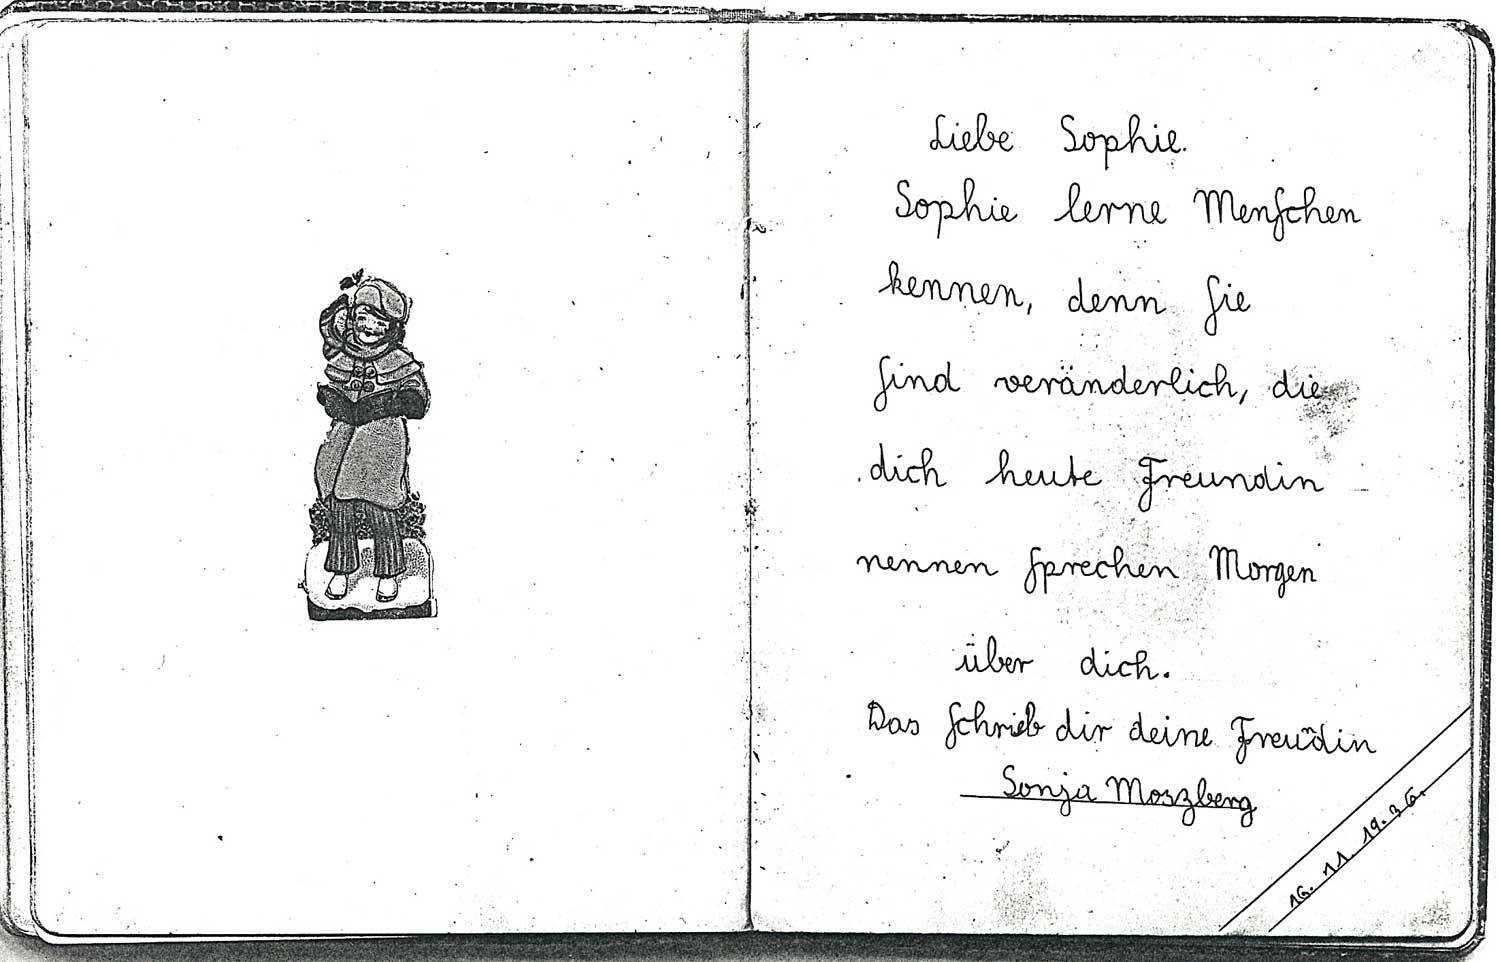 Liebe Sophie.
Sophie lerne Menſchen
kennen, denn ſie
ſind veränderlich, die
dich heute Freundin
nennen ſprechen Morgen
über dich.
Das ſchrieb dir deine Freūdin
Sonja Moszberg
16. 11. 19.36.